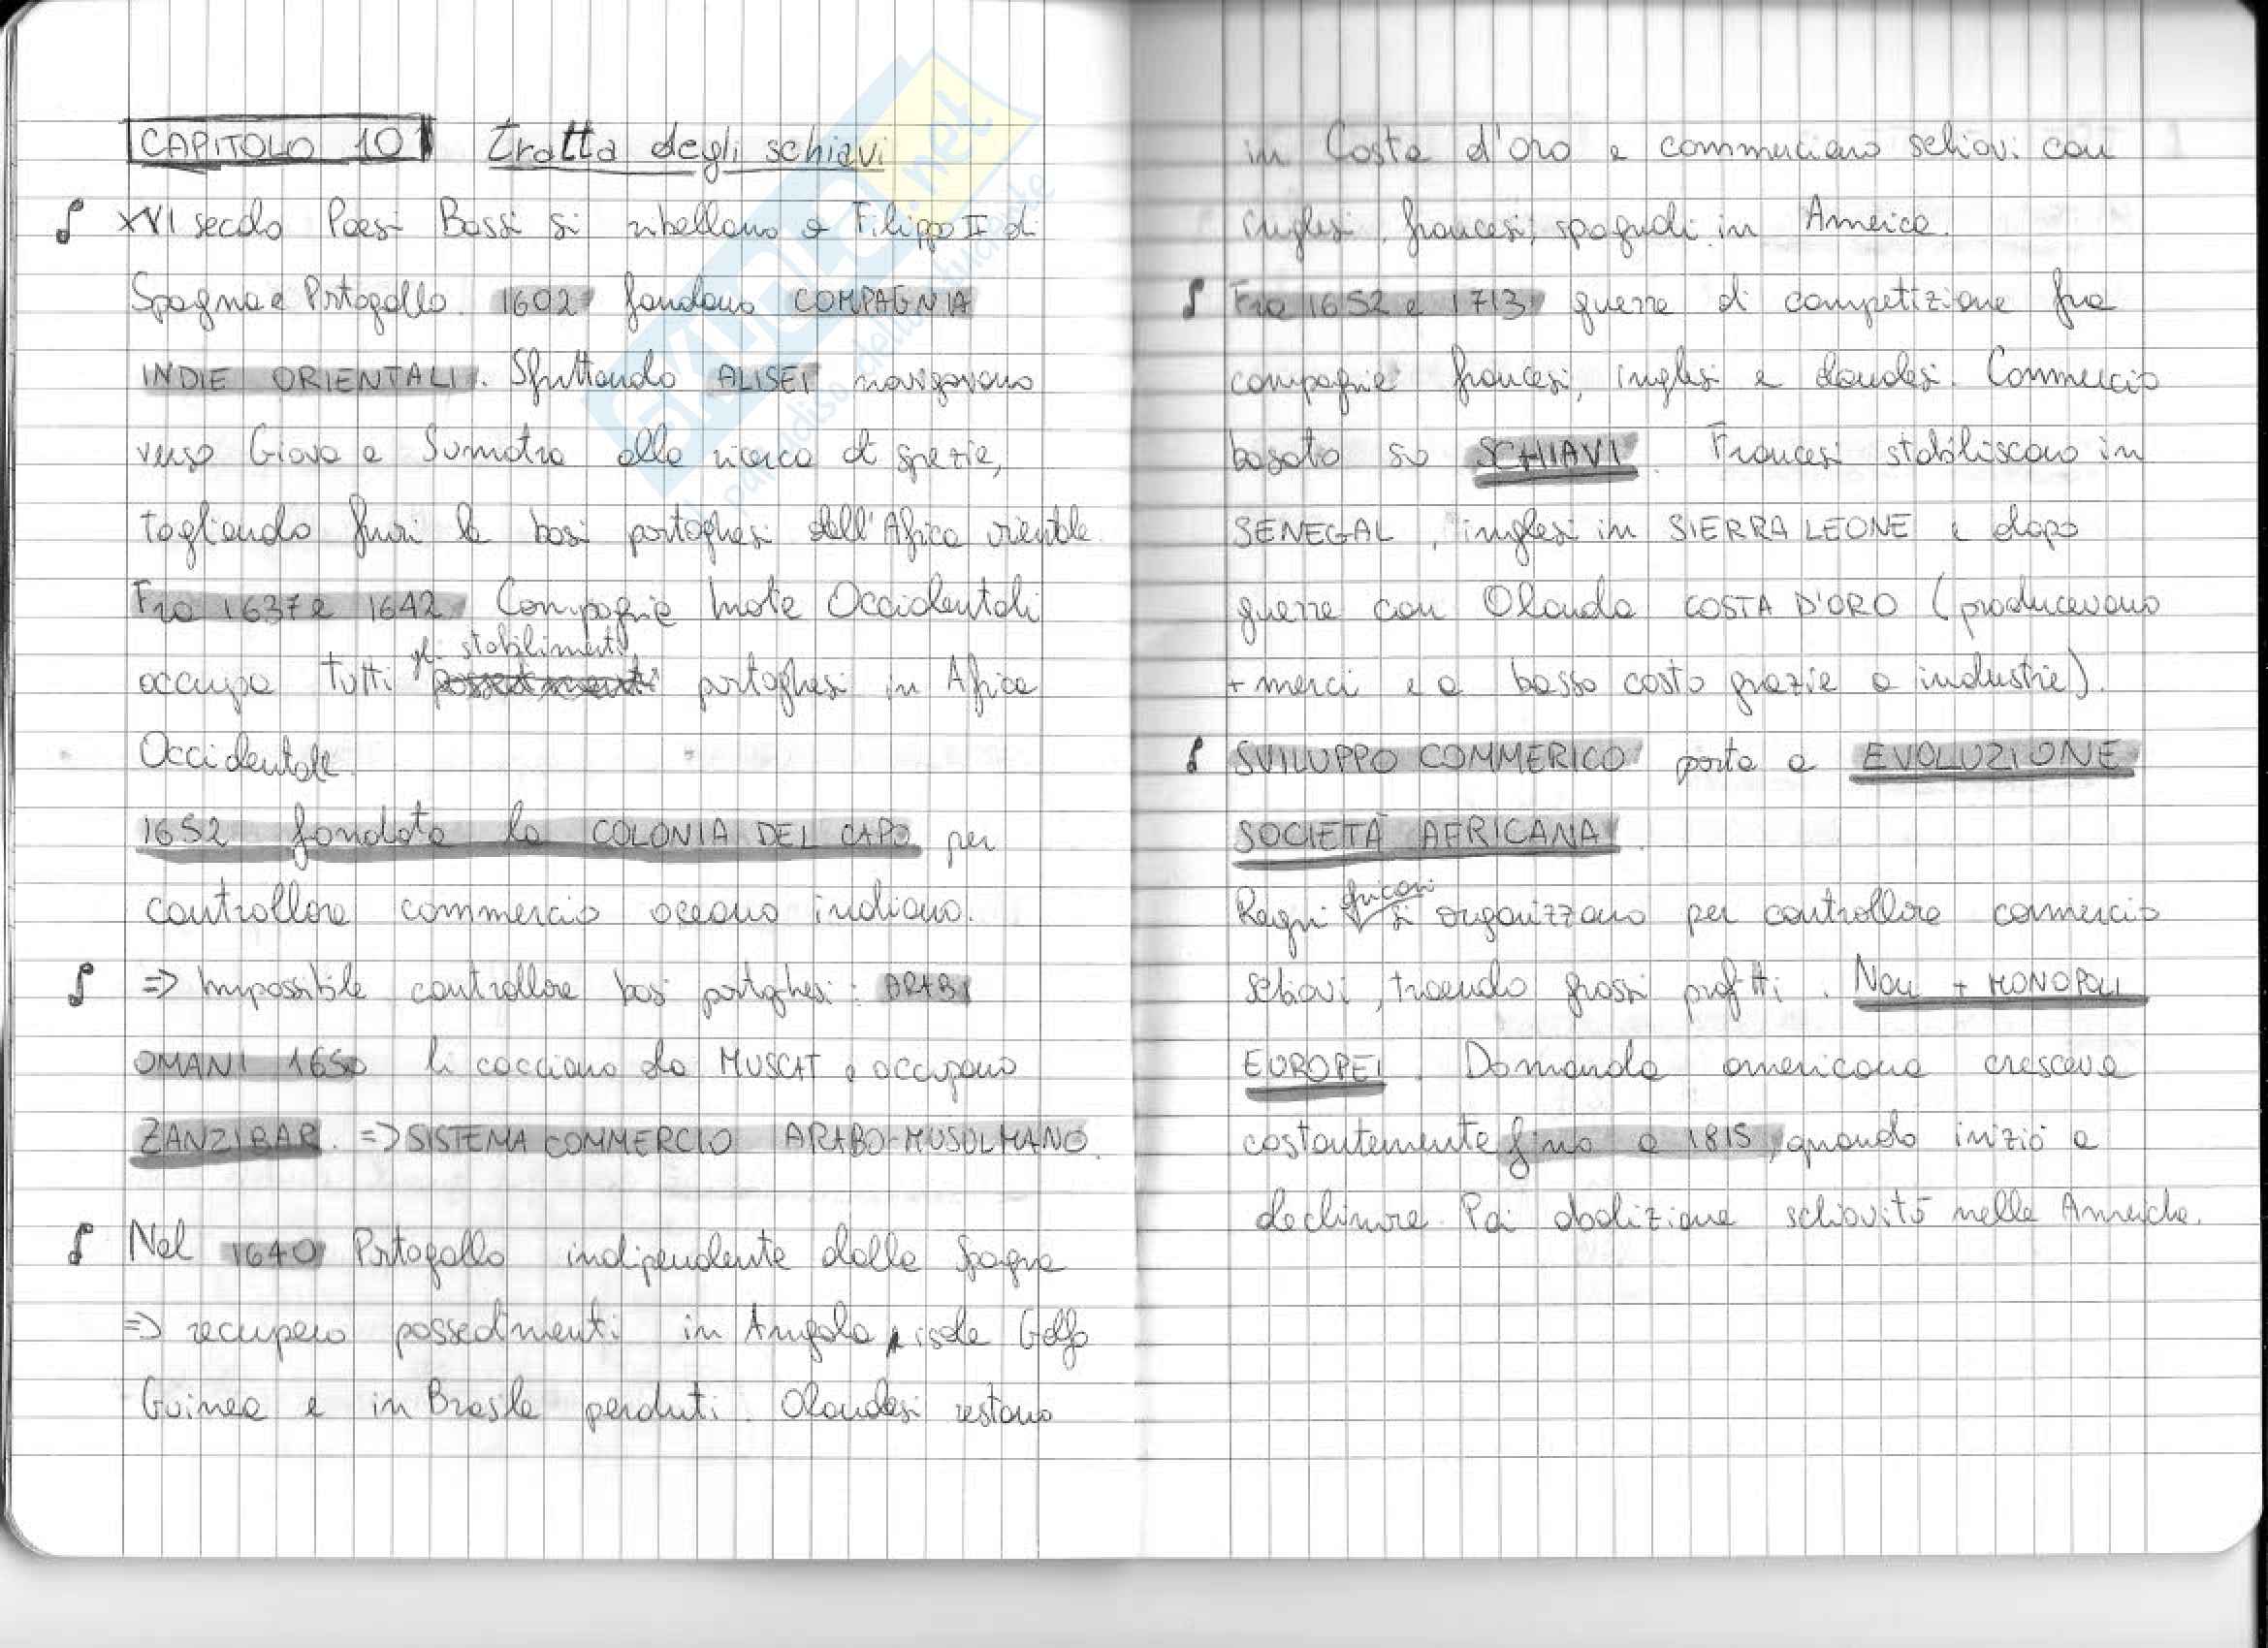 CAPITOLO 10 Tratta degli schiavi
XVI secolo Paesi Bassi si ribellano a Filippo II di
Spagna e Portogallo. 1602 fondano COMPAGNIA
INDIE ORIENTALI. Sfruttando ALISEI navigavano
verso Giava e Sumatra alla ricerca di spezie,
tagliando fuori le basi portoghesi dell'Africa orientale.
Fra 1637 e 1642 Compagnie Indie Occidentali
occupa tutti gli stabilimenti portoghesi in Africa
Occidentale.
1652 fondata la COLONIA DEL CAPO per
controllare commercio oceano indiano.
=> Impossibile controllare basi portoghesi: ARABI
OMANI 1650 li cacciano da MUSCAT e occupano
ZANZIBAR. => SISTEMA COMMERCIO ARABO-MUSULMANO.
Nel 1640 Portogallo indipendente dalla Spagna
=> recupero possedimenti in Angola, isole Golfo
Guinea e in Brasile perduti. Olandesi restano
in Costa d'oro e commerciano schiavi con
inglesi, francesi, spagnoli in America.
Fra 1652 e 1713 guerre di competizione fra
compagnie francesi, inglesi e olandesi. Commercio
basato su SCHIAVI. Francesi stabiliscono in
SENEGAL, inglesi in SIERRA LEONE e dopo
guerre con Olanda COSTA D'ORO (producevano
+ merci e a basso costo grazie a industrie).
SVILUPPO COMMERICO porta a EVOLUZIONE
SOCIETÀ AFRICANA.
Regni africani si organizzano per controllare commercio
schiavi, traendo grossi profitti. Non + MONOPOLI
EUROPEI. Domanda americana cresceva
costantemente fino a 1815, quando iniziò a
declinare. Poi abolizione schiavitù nelle Americhe.
SKUOLA.net
il paradiso dello studente